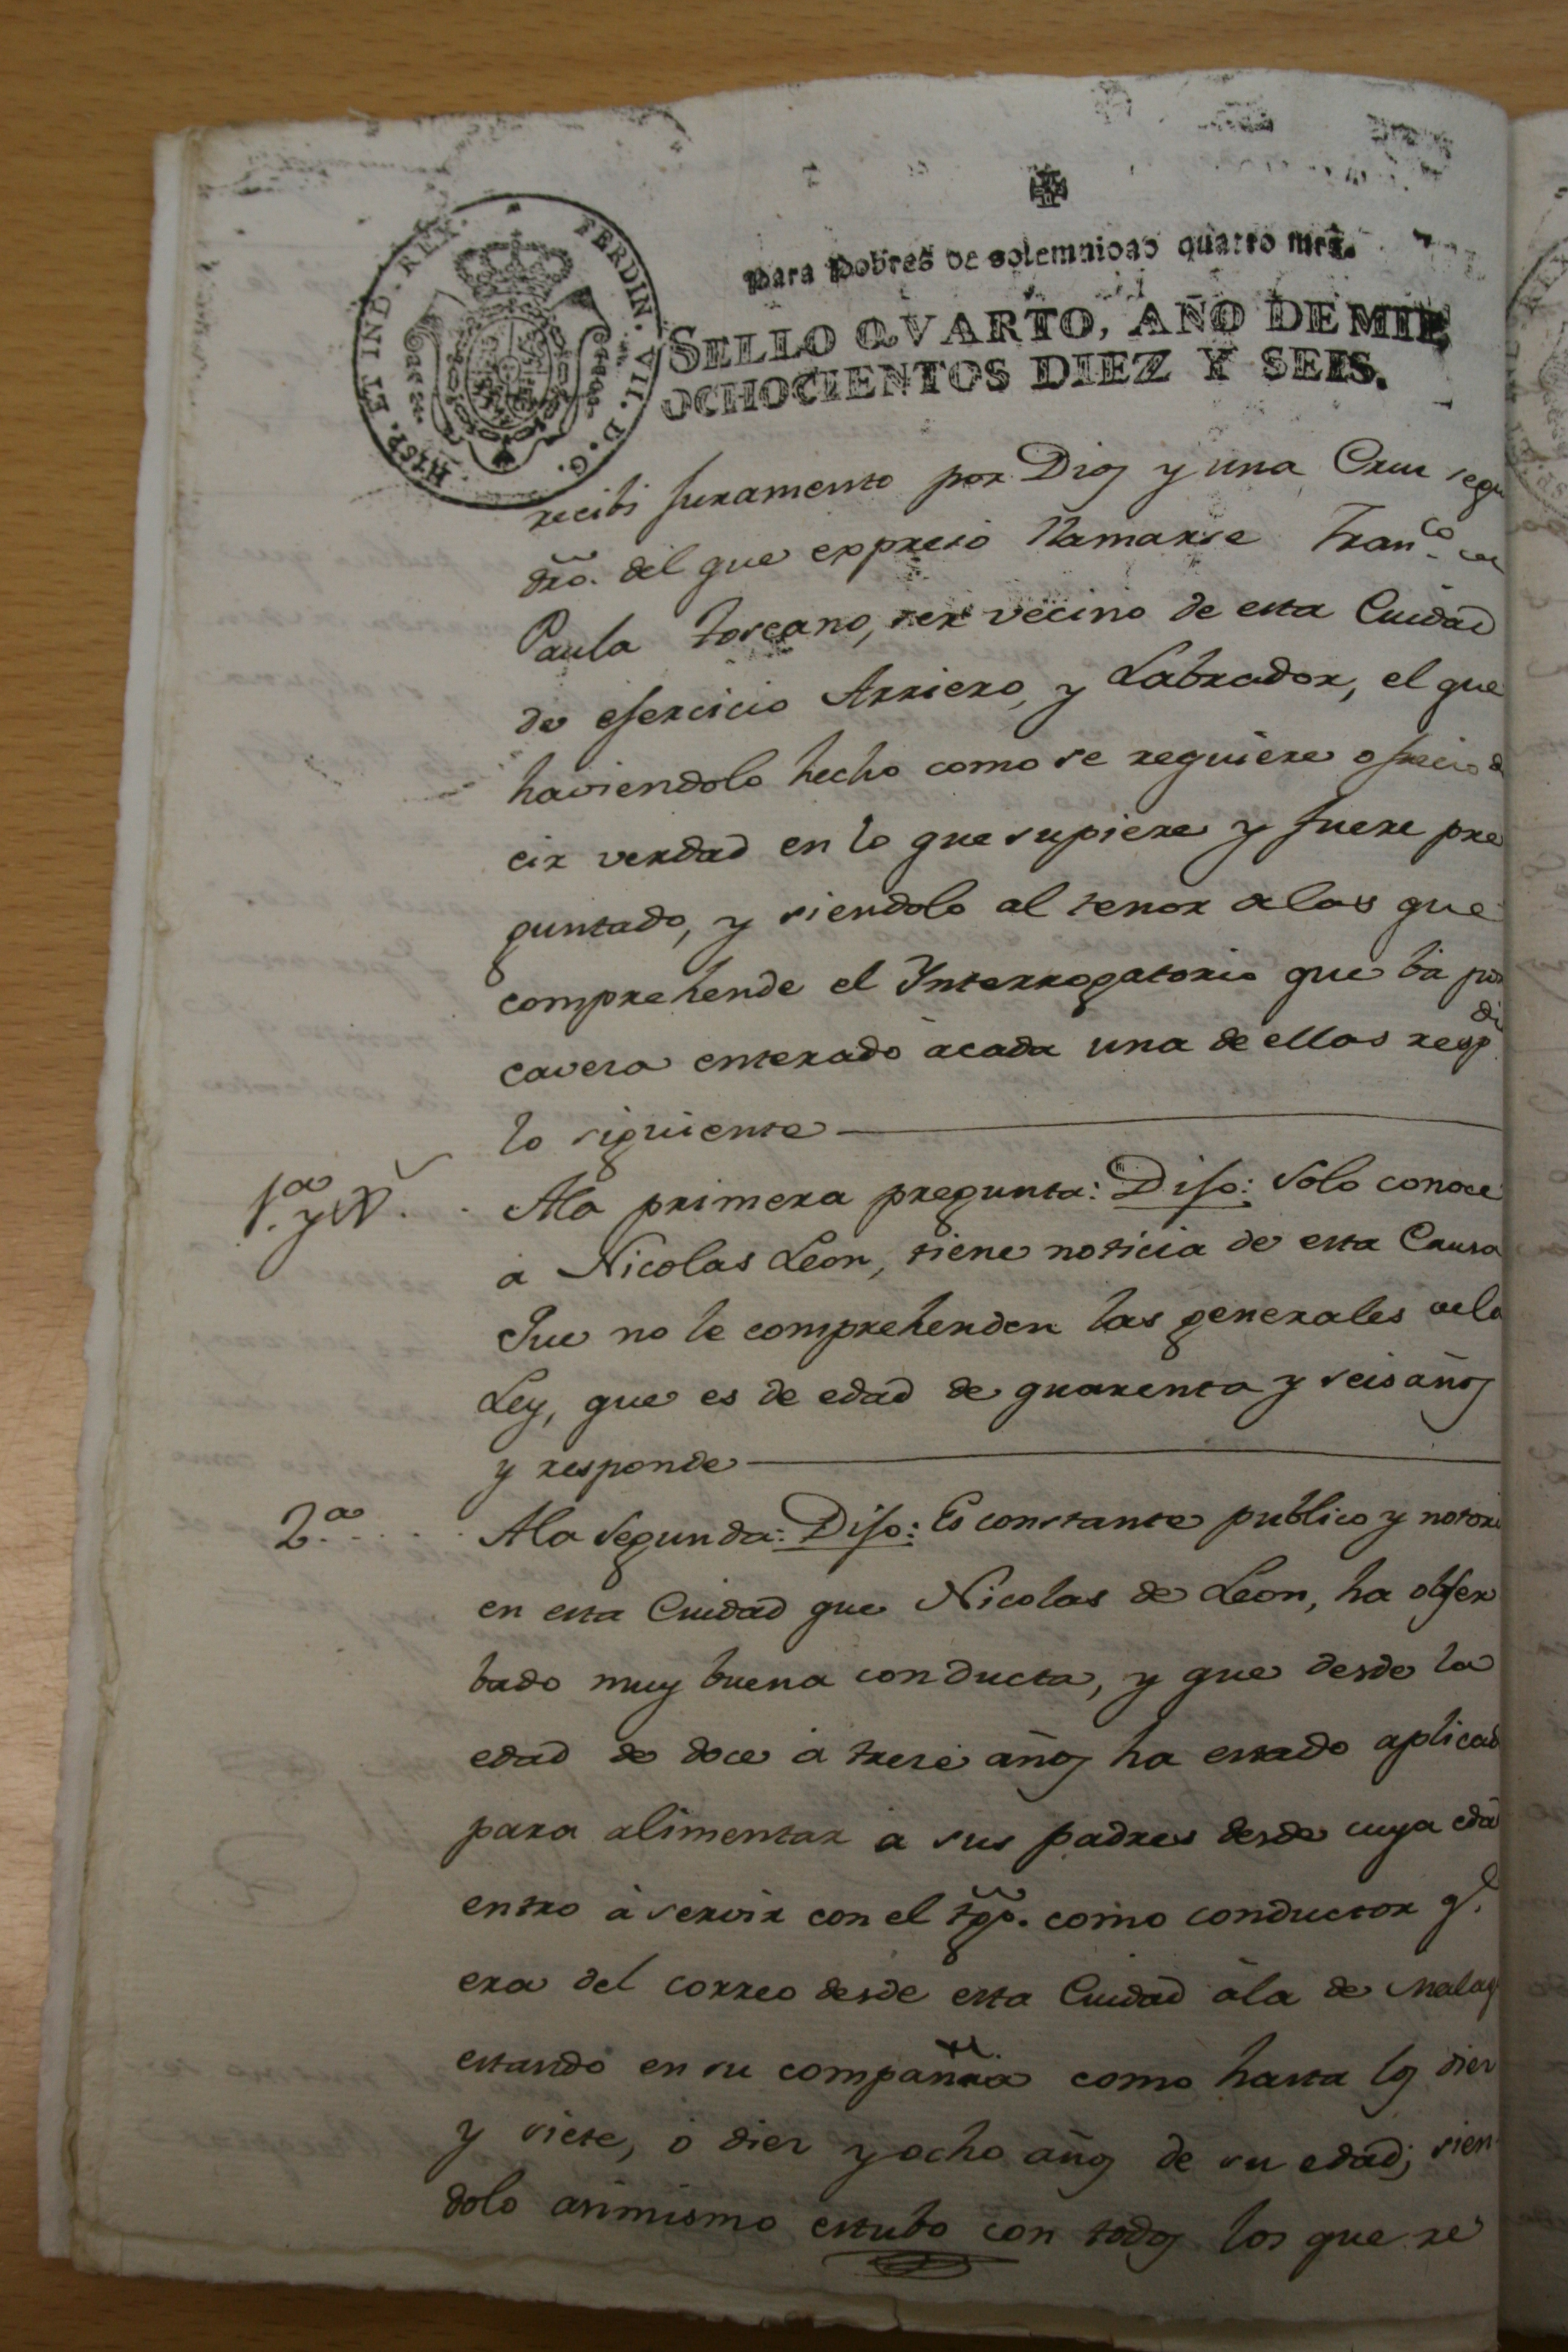 Para Pobres de solemnidad quatro mrs.
HISP. ET IND. REX. FERDIN. VII. D. G.
SELLO QVARTO, AÑO DE MIL
OCHOCIENTOS DIEZ Y SEIS.
recibi juramento por Dios y una Cruz segu
dro. del que expreso llamarse Franco. de
Paula Toscano, ser vecino de esta Cuidad
de ejercicio Arriero, y Labrador, el que
haviendolo hecho como se requiere ofrecio de
cir verdad en lo que supiere y fuere pre
guntado, y siendolo al tenor de las que
comprehende el Ynterrogatorio que ba por
cavera enterado àcada una de ellas respdi
lo siguiente
1.a y
Ala primera pregunta: Dijo: Solo conoce
a Nicolas Leon, tiene noticia de esta Causa
Que no le comprehenden las generales dela
Ley, que es de edad de quarenta y seis años
y responde
2.a
Ala Segunda: Dijo: Es constante publico y notori
en esta Cuidad que Nicolas de Leon, ha obser
bado muy buena conducta, y que desde la
edad de doce à trese años ha estado aplicad
para alimentar a sus padres desde cuya eda
entro à servir con el tgo. como conductor q.e
era del correo desde esta Cuidad àla de Malag
estando en su compañia como hasta los dier
y siete, ò dier y ocho años de su edad; sien
dolo asimismo estubo con todos los que se